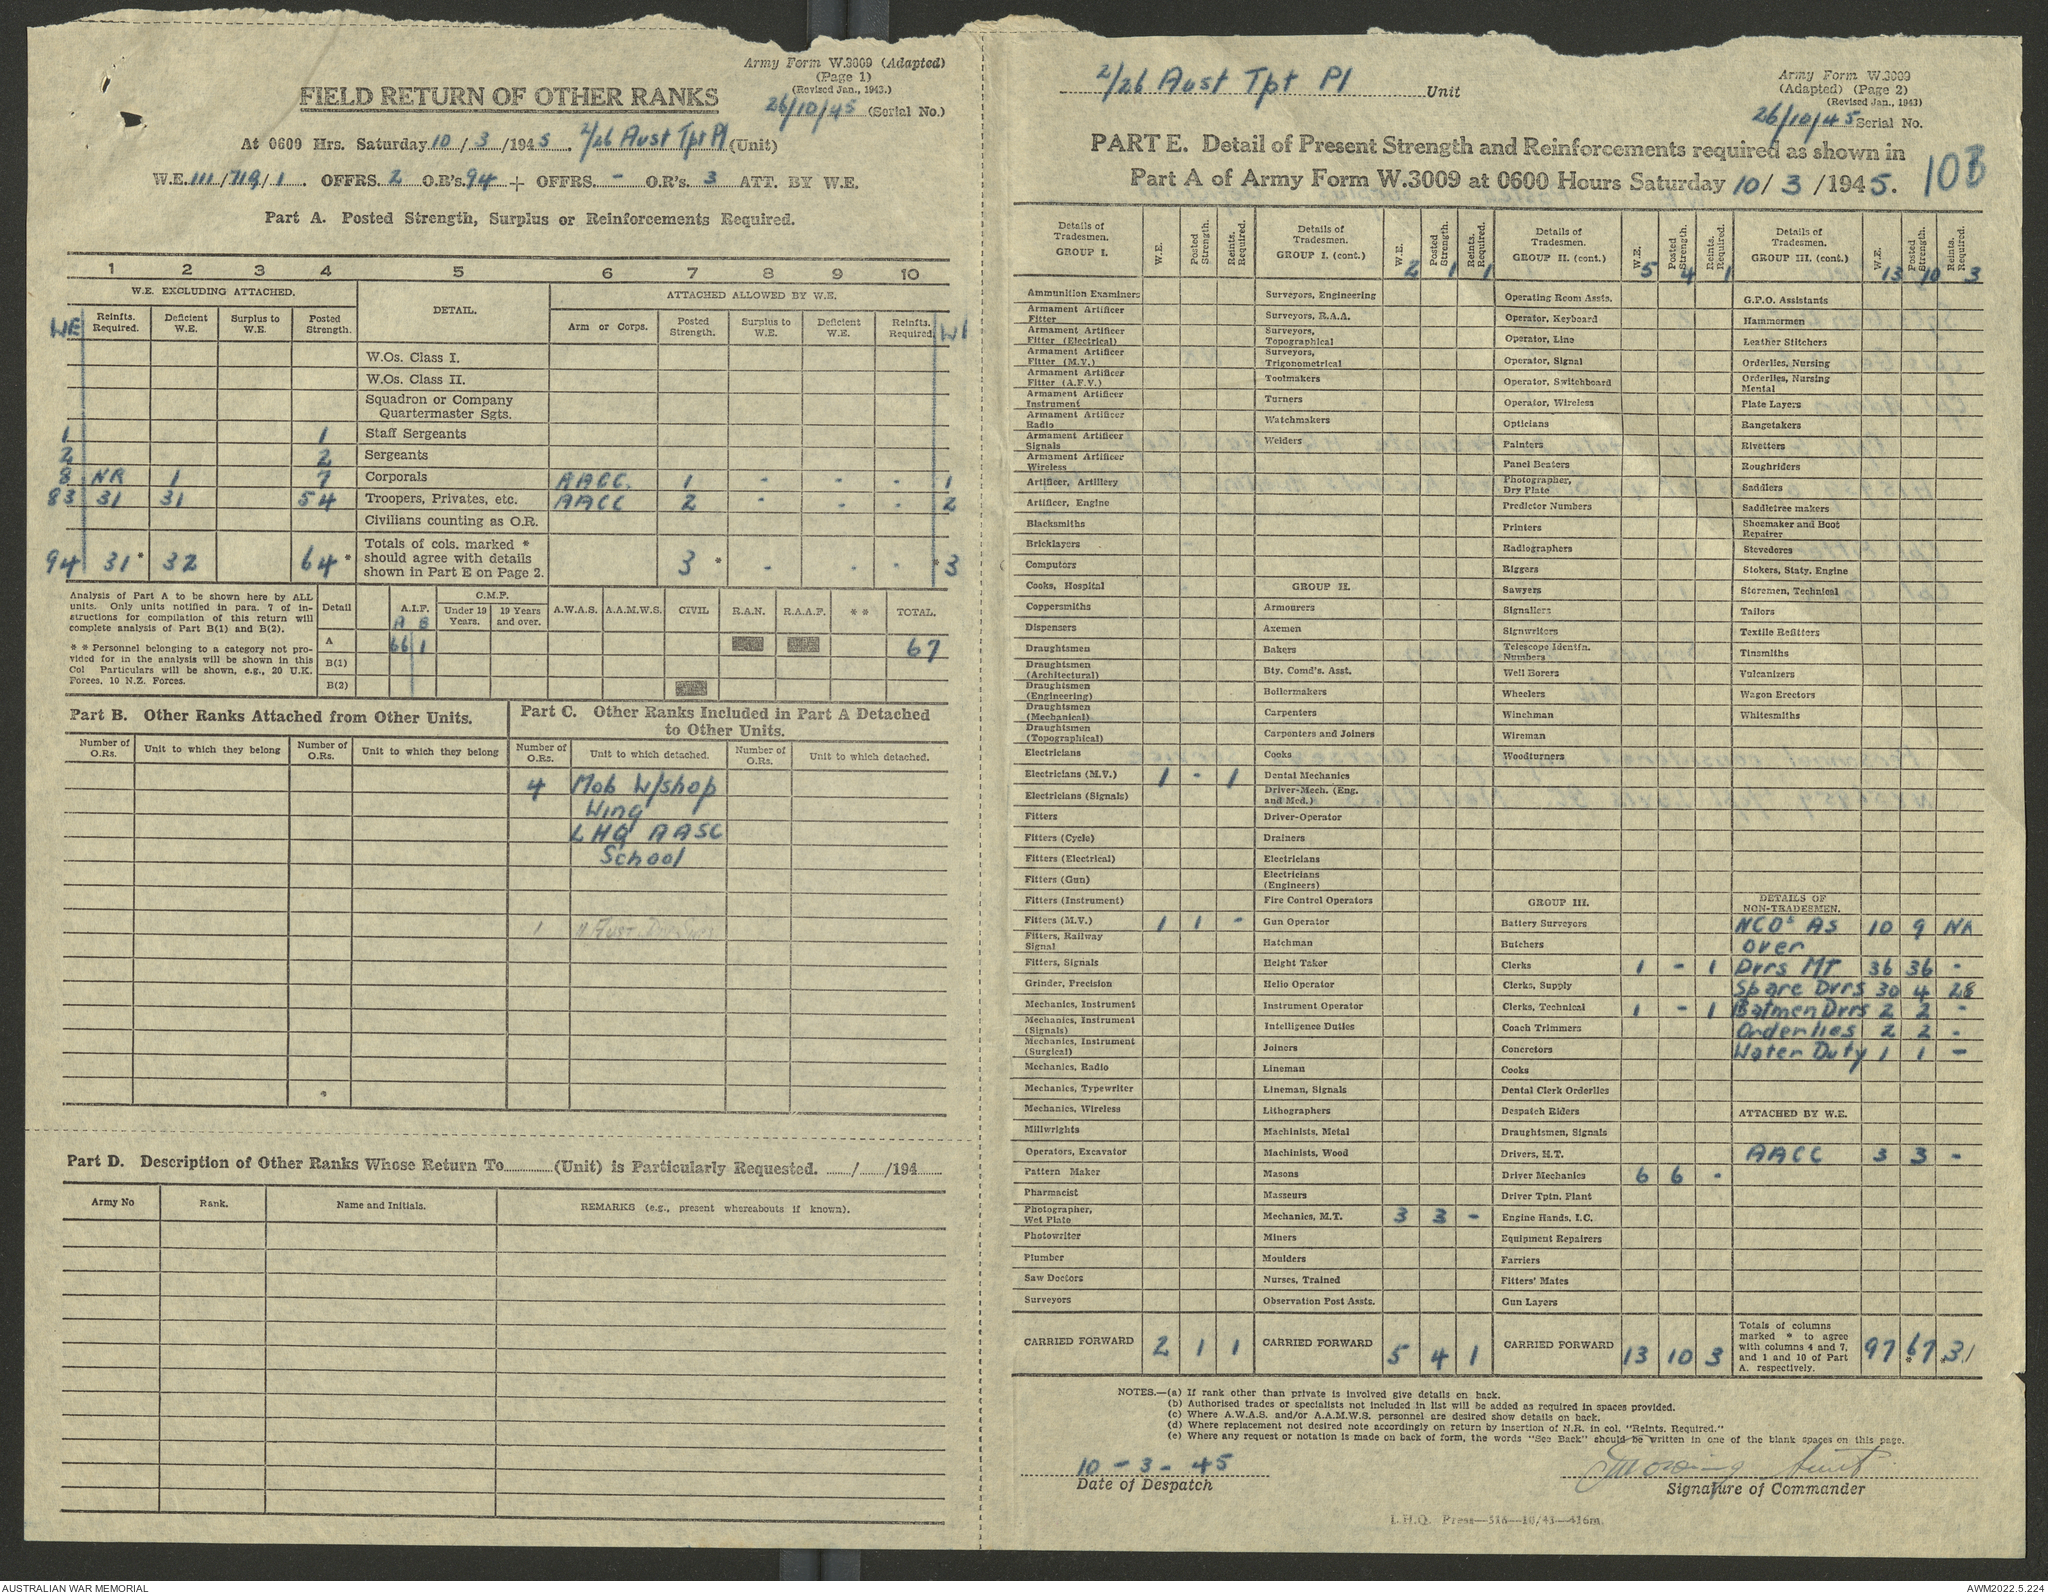 Army Form W.3009 (Adapted)
(Page 1)
(Revised Jan., 1943.)
FIELD RETURN OF OTHER RANKS
26/10/45 (Serial No.)
At 0600 Hrs. Saturday 10/3/1945. 2/26 Aust Tpt Pl (Unit)
W.E. 111/719/1. OFFRS. 2 O.R's. 94 + OFFRS. - O.R's. 3 ATT. BY W.E.
Part A. Posted Strength, Surplus or Reinforcements Required.
1 2 3 4 5 6 7 8 9 10
W.E. EXCLUDING ATTACHED. DETAIL. ATTACHED ALLOWED BY W.E.
WE Reinfts. Required. Deficient W.E. Surplus to W.E. Posted Strength. Arm or Corps. Posted Strength. Surplus to W.E. Deficient W.E. Reinfts. Required.
W.Os. Class I.
W.Os. Class II.
Squadron or Company
Quartermaster Sgts.
1 1 Staff Sergeants
2 2 Sergeants
8 NR 1 7 Corporals AACC. 1 - - - 1
83 31 31 54 Troopers, Privates, etc. AACC 2 - - 2
Civilians counting as O.R.
94 31* 32 64* Totals of cols. marked * should agree with details shown in Part E on Page 2. 3* - - - *3
Analysis of Part A to be shown here by ALL
units. Only units notified in para. 7 of in-
structions for compilation of this return will
complete analysis of Part B(1) and B(2).
* * Personnel belonging to a category not pro-
vided for in the analysis will be shown in this
Col Particulars will be shown, e.g., 20 U.K.
Forces, 10 N.Z. Forces.
Detail A.I.F. C.M.F. A.W.A.S. A.A.M.W.S. CIVIL R.A.N. R.A.A.F. * * TOTAL.
A B Under 19 Years. 19 Years and over.
A 66 1 67
B(1)
B(2)
Part B. Other Ranks Attached from Other Units.
Number of O.Rs. Unit to which they belong Number of O.Rs. Unit to which they belong
Part C. Other Ranks Included in Part A Detached
to Other Units.
Number of O.Rs. Unit to which detached. Number of O.Rs. Unit to which detached.
4 Mob W/shop
Wing
LHQ AASC
School
1
Part D. Description of Other Ranks Whose Return To (Unit) is Particularly Requested. / /194
Army No Rank. Name and Initials. REMARKS (e.g., present whereabouts if known).
2/26 Aust Tpt Pl Unit
Army Form W.3009
(Adapted) (Page 2)
(Revised Jan., 1943)
26/10/45 Serial No.
PART E. Detail of Present Strength and Reinforcements required as shown in
Part A of Army Form W.3009 at 0600 Hours Saturday 10/3/1945.
Details of Tradesmen. GROUP I. W.E. Posted Strength. Reinfts. Required.
Ammunition Examiners
Armament Artificer Fitter
Armament Artificer Fitter (Electrical)
Armament Artificer Fitter (M.V.)
Armament Artificer Fitter (A.F.V.)
Armament Artificer Instrument
Armament Artificer Radio
Armament Artificer Signals
Armament Artificer Wireless
Artificer, Artillery
Artificer, Engine
Blacksmiths
Bricklayers
Computors
Cooks, Hospital
Coppersmiths
Dispensers
Draughtsmen
Draughtsmen (Architectural)
Draughtsmen (Engineering)
Draughtsmen (Mechanical)
Draughtsmen (Topographical)
Electricians
Electricians (M.V.) 1 - 1
Electricians (Signals)
Fitters
Fitters (Cycle)
Fitters (Electrical)
Fitters (Gun)
Fitters (Instrument)
Fitters (M.V.) 1 1 -
Fitters, Railway Signal
Fitters, Signals
Grinder, Precision
Mechanics, Instrument
Mechanics, Instrument (Signals)
Mechanics, Instrument (Surgical)
Mechanics, Radio
Mechanics, Typewriter
Mechanics, Wireless
Millwrights
Operators, Excavator
Pattern Maker
Pharmacist
Photographer, Wet Plate
Photowriter
Plumber
Saw Doctors
Surveyors
CARRIED FORWARD 2 1 1
Details of Tradesmen. GROUP I. (cont.) W.E. 2 Posted Strength. 1 Reinfts. Required. 1
Surveyors, Engineering
Surveyors, R.A.A.
Surveyors, Topographical
Surveyors, Trigonometrical
Toolmakers
Turners
Watchmakers
Welders
GROUP II.
Armourers
Axemen
Bakers
Bty. Comd's. Asst.
Boilermakers
Carpenters
Carpenters and Joiners
Cooks
Dental Mechanics
Driver-Mech. (Eng. and Med.)
Driver-Operator
Drainers
Electricians
Electricians (Engineers)
Fire Control Operators
Gun Operator
Hatchman
Height Taker
Helio Operator
Instrument Operator
Intelligence Duties
Joiners
Lineman
Lineman, Signals
Lithographers
Machinists, Metal
Machinists, Wood
Masons
Masseurs
Mechanics, M.T. 3 3 -
Miners
Moulders
Nurses, Trained
Observation Post Assts.
CARRIED FORWARD 5 4 1
Details of Tradesmen. GROUP II. (cont.) W.E. 5 Posted Strength. 4 Reinfts. Required. 1
Operating Room Assts.
Operator, Keyboard
Operator, Line
Operator, Signal
Operator, Switchboard
Operator, Wireless
Opticians
Painters
Panel Beaters
Photographer, Dry Plate
Predictor Numbers
Printers
Radiographers
Riggers
Sawyers
Signallers
Signwriters
Telescope Identfn. Numbers
Well Borers
Wheelers
Winchman
Wireman
Woodturners
GROUP III.
Battery Surveyors
Butchers
Clerks 1 - 1
Clerks, Supply
Clerks, Technical 1 - 1
Coach Trimmers
Concretors
Cooks
Dental Clerk Orderlies
Despatch Riders
Draughtsmen, Signals
Drivers, H.T.
Driver Mechanics 6 6 -
Driver Tptn. Plant
Engine Hands, I.C.
Equipment Repairers
Farriers
Fitters' Mates
Gun Layers
CARRIED FORWARD 13 10 3
Details of Tradesmen. GROUP III. (cont.) W.E. 13 Posted Strength. 10 Reinfts. Required. 3
G.P.O. Assistants
Hammermen
Leather Stitchers
Orderlies, Nursing
Orderlies, Nursing Mental
Plate Layers
Rangetakers
Rivetters
Roughriders
Saddlers
Saddletree makers
Shoemaker and Boot Repairer
Stevedores
Stokers, Staty. Engine
Storemen, Technical
Tailors
Textile Refitters
Tinsmiths
Vulcanizers
Wagon Erectors
Whitesmiths
DETAILS OF NON-TRADESMEN.
NCOs AS 10 9 NR
over
Dvrs MT 36 36 -
Spare Dvrs 30 4 28
Batmen Dvrs 2 2 -
Orderlies 2 2 -
Water Duty 1 1 -
ATTACHED BY W.E.
AACC 3 3 -
Totals of columns marked * to agree with columns 4 and 7, and 1 and 10 of Part A. respectively. 97 67* *31
NOTES.—(a) If rank other than private is involved give details on back.
(b) Authorised trades or specialists not included in list will be added as required in spaces provided.
(c) Where A.W.A.S. and/or A.A.M.W.S. personnel are desired show details on back.
(d) Where replacement not desired note accordingly on return by insertion of N.R. in col. "Reints. Required."
(e) Where any request or notation is made on back of form, the words "See Back" should be written in one of the blank spaces on this page.
10 - 3 - 45
Date of Despatch
Signature of Commander
L.H.Q. Press—316—10/43—416m.
AUSTRALIAN WAR MEMORIAL
AWM2022.5.224